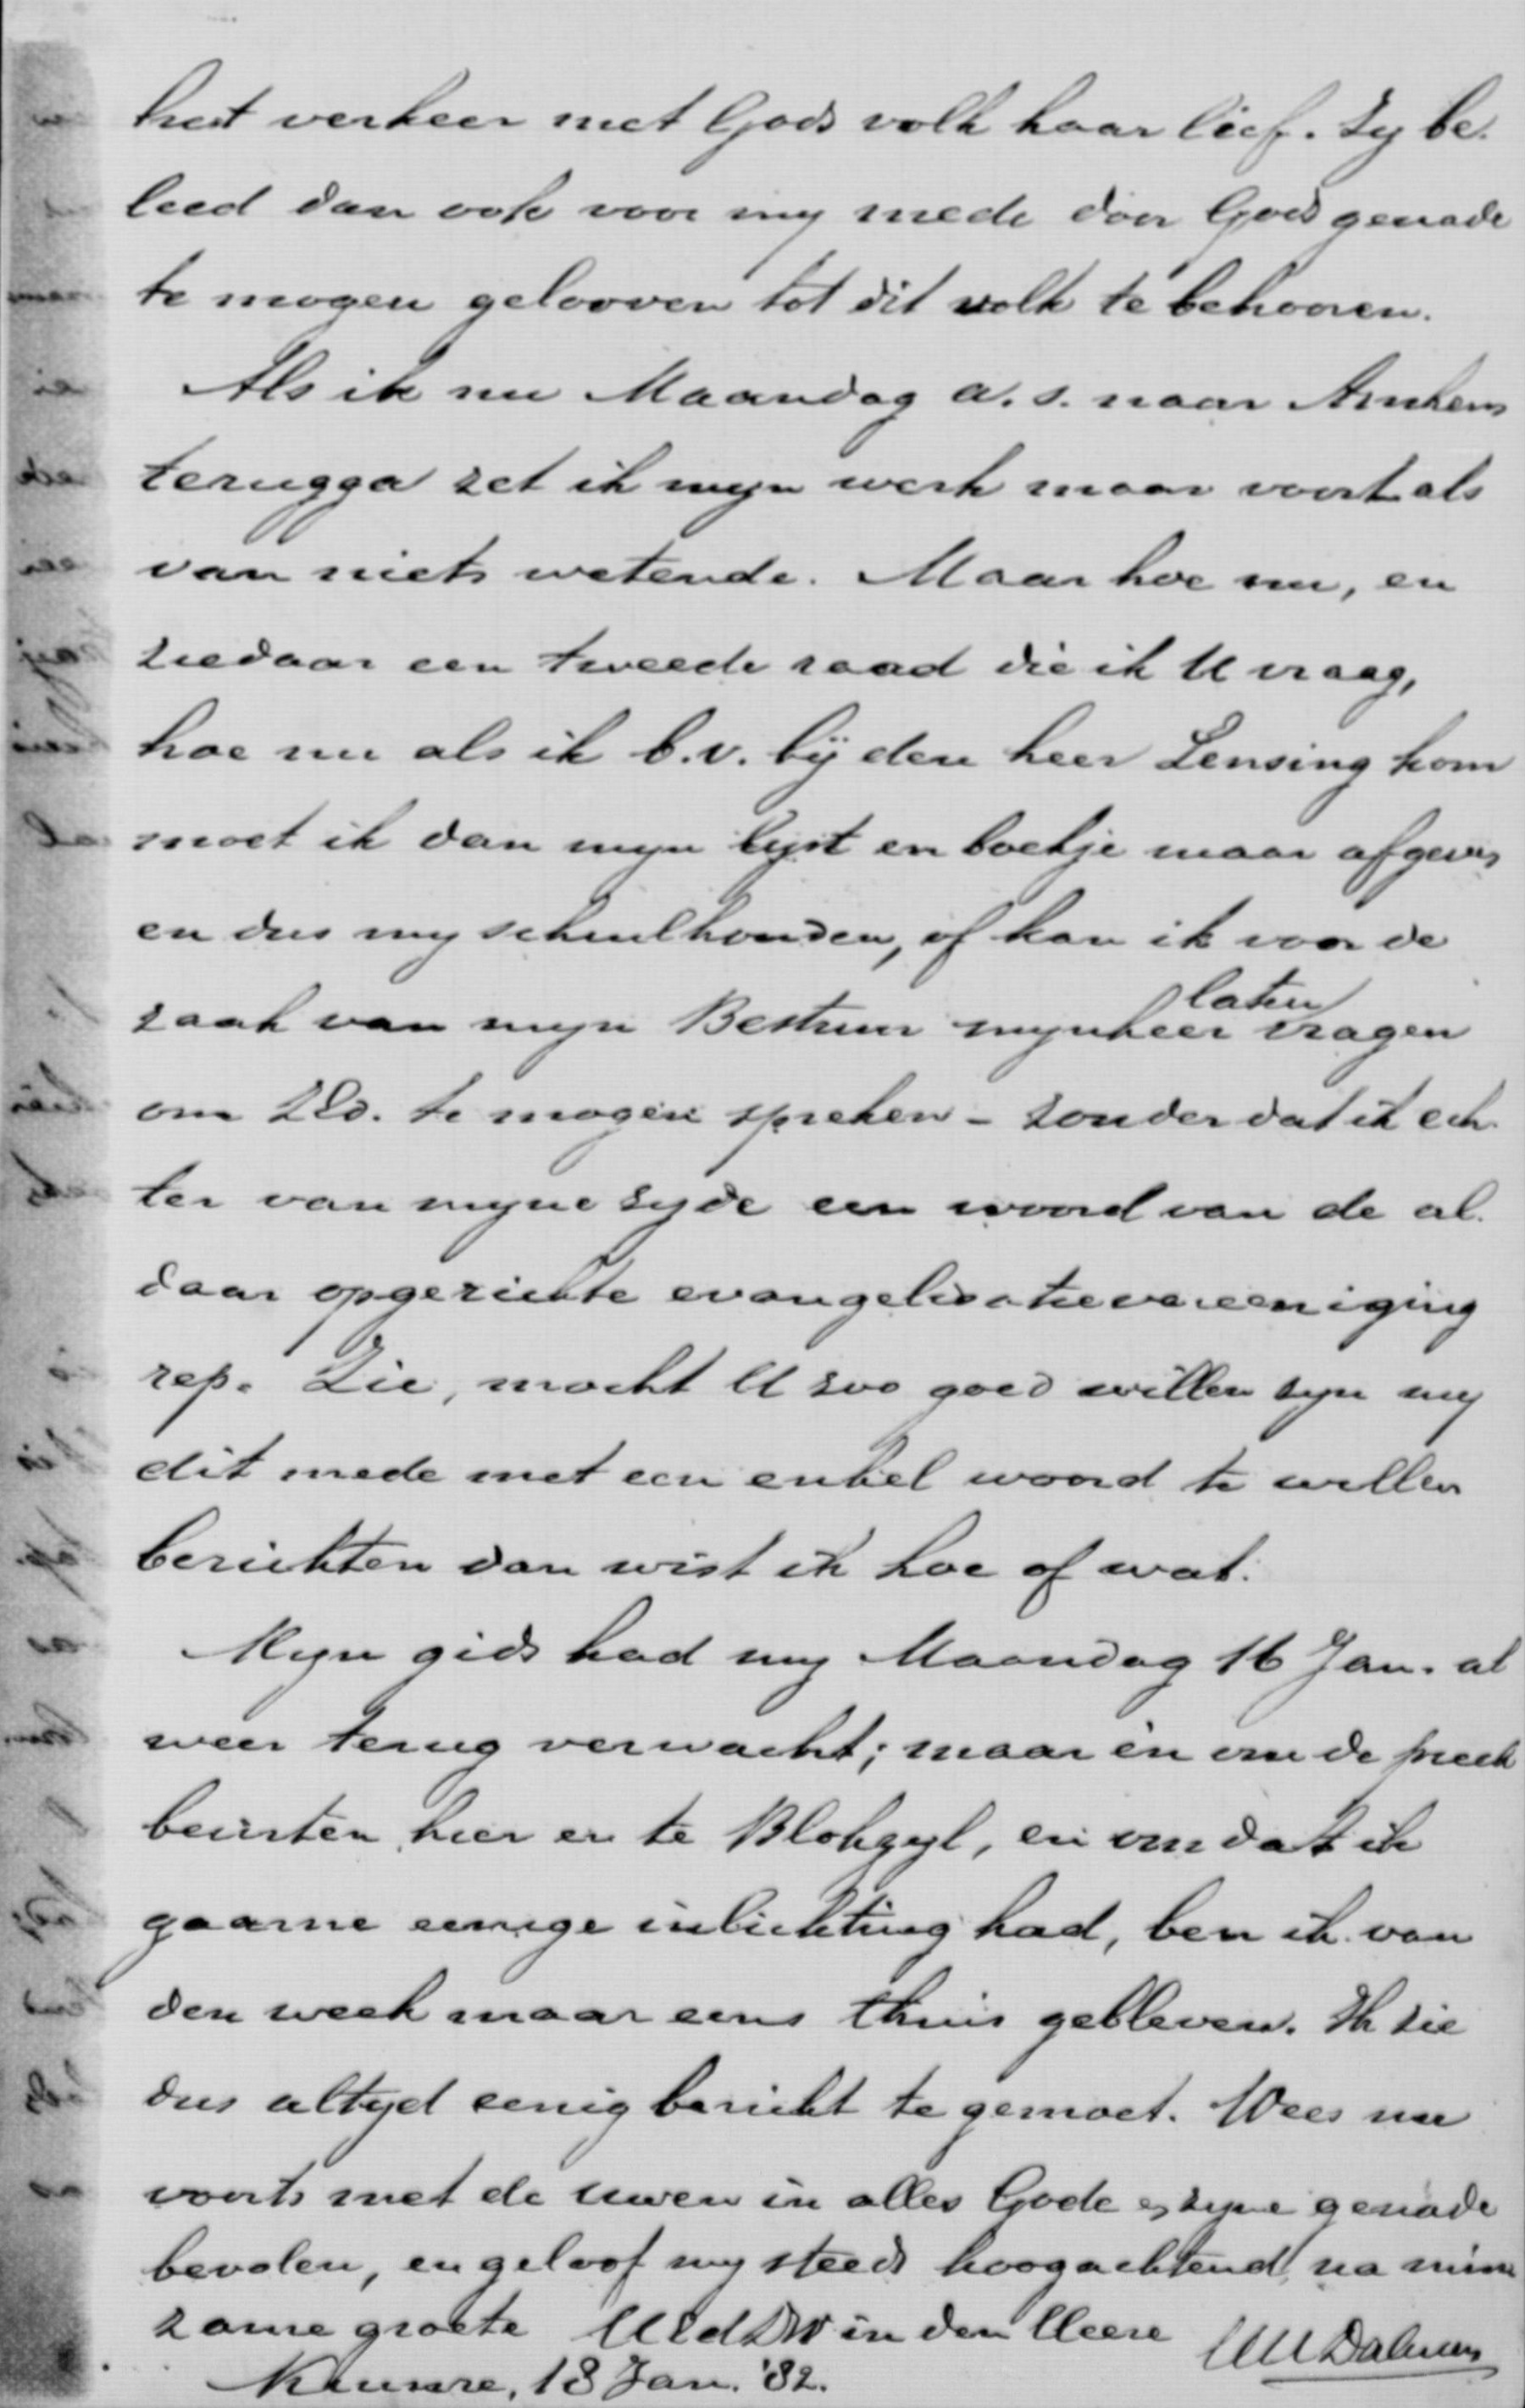 het verkeer met Gods volk haar lief. Zy be-
leed dan ook voor my mede door Gods genade
te mogen gelooven tot dit volk te behooren.
Als ik nu Maandag a.s. naar Arnhem
terugga zet ik myn werk maar voort als
van niets wetende. Maar hoe nu, en
ziedaar een tweede raad die ik U vraag,
hoe nu als ik b.v. bij den heer Lensing kom
moet ik dan myn lyst en boekje maar afgeven
en dus my schuilhouden, of kan ik voor de
zaak van myn Bestuur mynheer laten vragen
om ZEd. te mogen spreken - zonder dat ik ech-
ter van myne zyde een woord van de al-
daar opgerichte evangelisatievereeniging
rep. Zie, mocht U zoo goed willen zyn my
dit mede met een enkel woord te willen
berichten dan wist ik hoe of wat.
Myn gids had my Maandag 16 Jan. al
weer terug verwacht; maar èn om de preek
beurten hier en te Blokzyl, èn omdat ik
gaarne eenige inlichting had, ben ik van
den week maar eens thuis gebleven. Ik zie
dus altyd eenig bericht te gemoet. Wees nu
voorts met de uwen in alles Gode en zyne genade
bevolen, en geloof my steeds hoogachtend, na min
zame groete UEdDW in den Heere
Dalmen
18 Jan. '82.